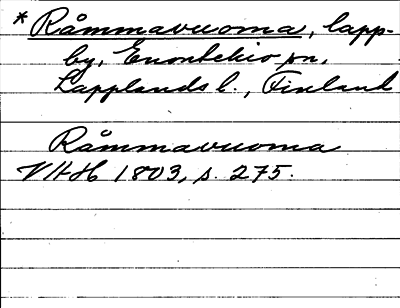 * Råmmavuoma, lapp-
by, Enontekio sn,
Lapplands l., Finland
Råmmavuoma
VHH 1803, s. 275.